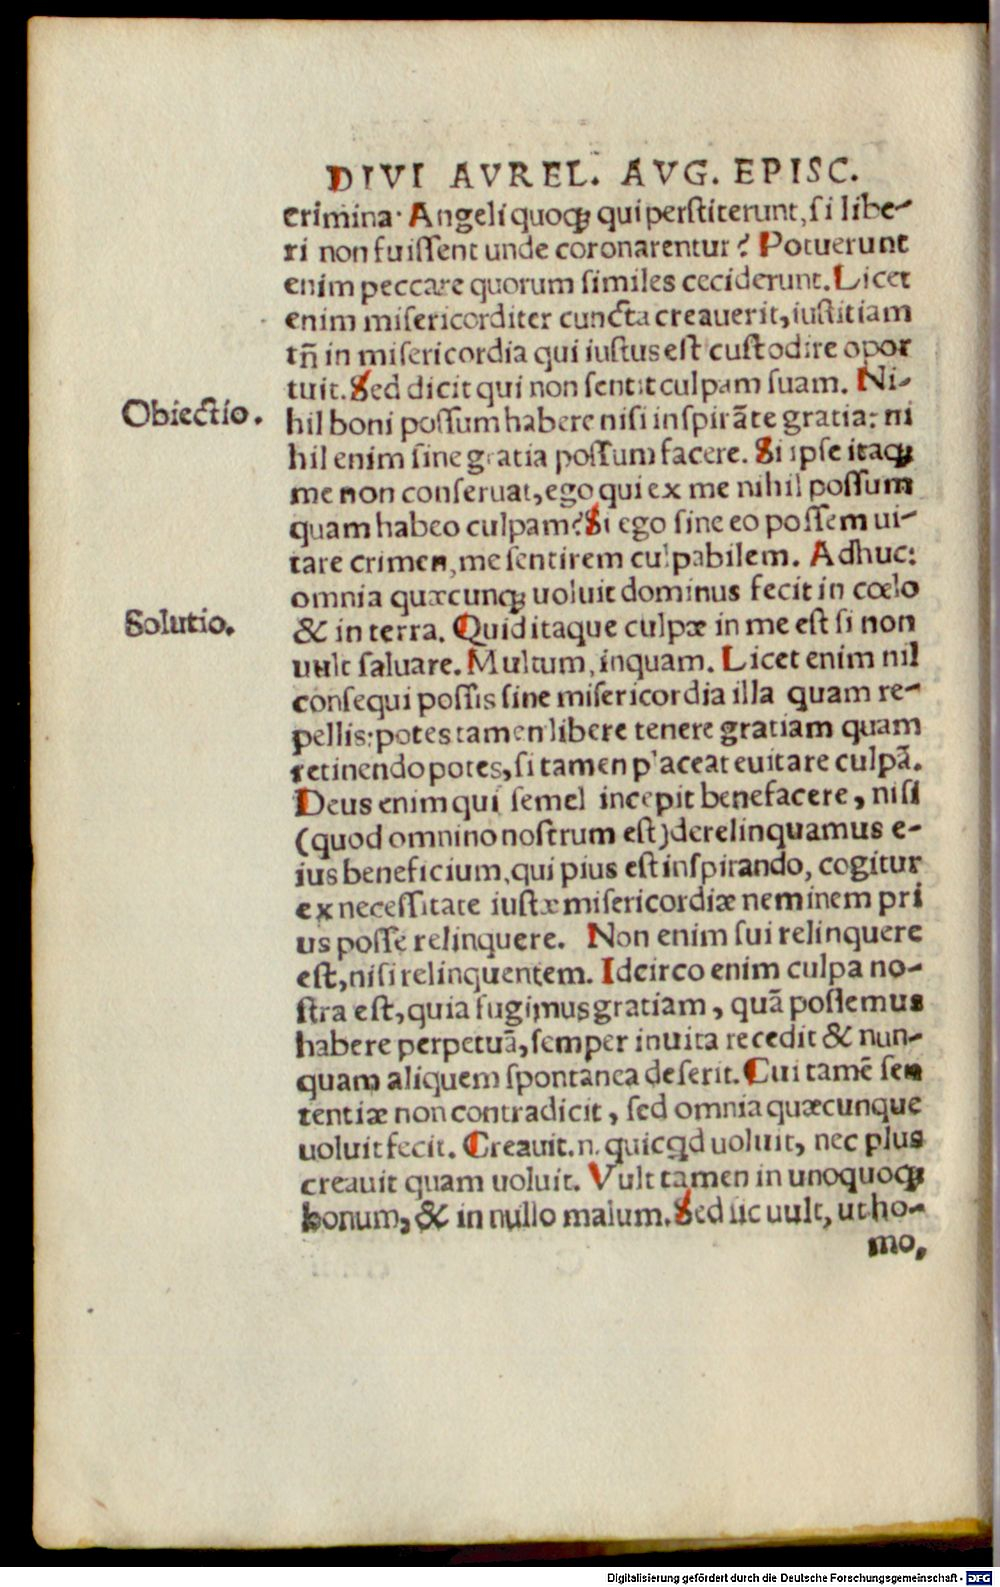 DIVI AVREL. AVG. EPISC.
crimina· Angeli quoqꝫ qui perstiterunt, si libe-
ri non fuissent unde coronarentur? Potuerunt
enim peccare quorum similes ceciderunt. Licet
enim misericorditer cuncta creauerit, iustitiam
tñ in misericordia qui iustus est custodire opor
tuit. Sed dicit qui non sentit culpam suam. Ni-
Obiectio.
hil boni possum habere nisi inspirãte gratia: ni
hil enim sine gratia possum facere. Si ipse itaqꝫ
me non conseruat, ego qui ex me nihil possum
quam habeo culpam? Si ego sine eo possem ui-
tare crimen, me sentirem culpabilem. Adhuc:
omnia quæcunqꝫ uoluit dominus fecit in cœlo
Solutio.
& in terra. Quid itaque culpæ in me est si non
uult saluare. Multum, inquam. Licet enim nil
consequi possis sine misericordia illa quam re-
pellis: potes tamen libere tenere gratiam quam
retinendo potes, si tamen placeat euitare culpã.
Deus enim qui semel incepit benefacere, nisi
(quod omnino nostrum est) derelinquamus e-
ius beneficium, qui pius est inspirando, cogitur
ex necessitate iustæ misericordiæ neminem pri
us posse relinquere. Non enim sui relinquere
est, nisi relinquentem. Idcirco enim culpa no-
stra est, quia fugimus gratiam, quã possemus
habere perpetuã, semper inuita recedit & nun-
quam aliquem spontanea deserit. Cui tamẽ sen
tentiæ non contradicit, sed omnia quæcunque
uoluit fecit. Creauit .n. quicqd uoluit, nec plus
creauit quam uoluit. Vult tamen in unoquoqꝫ
bonum, & in nullo malum. Sed sic uult, ut ho-
mo,
Digitalisierung gefördert durch die Deutsche Forschungsgemeinschaft - DFG